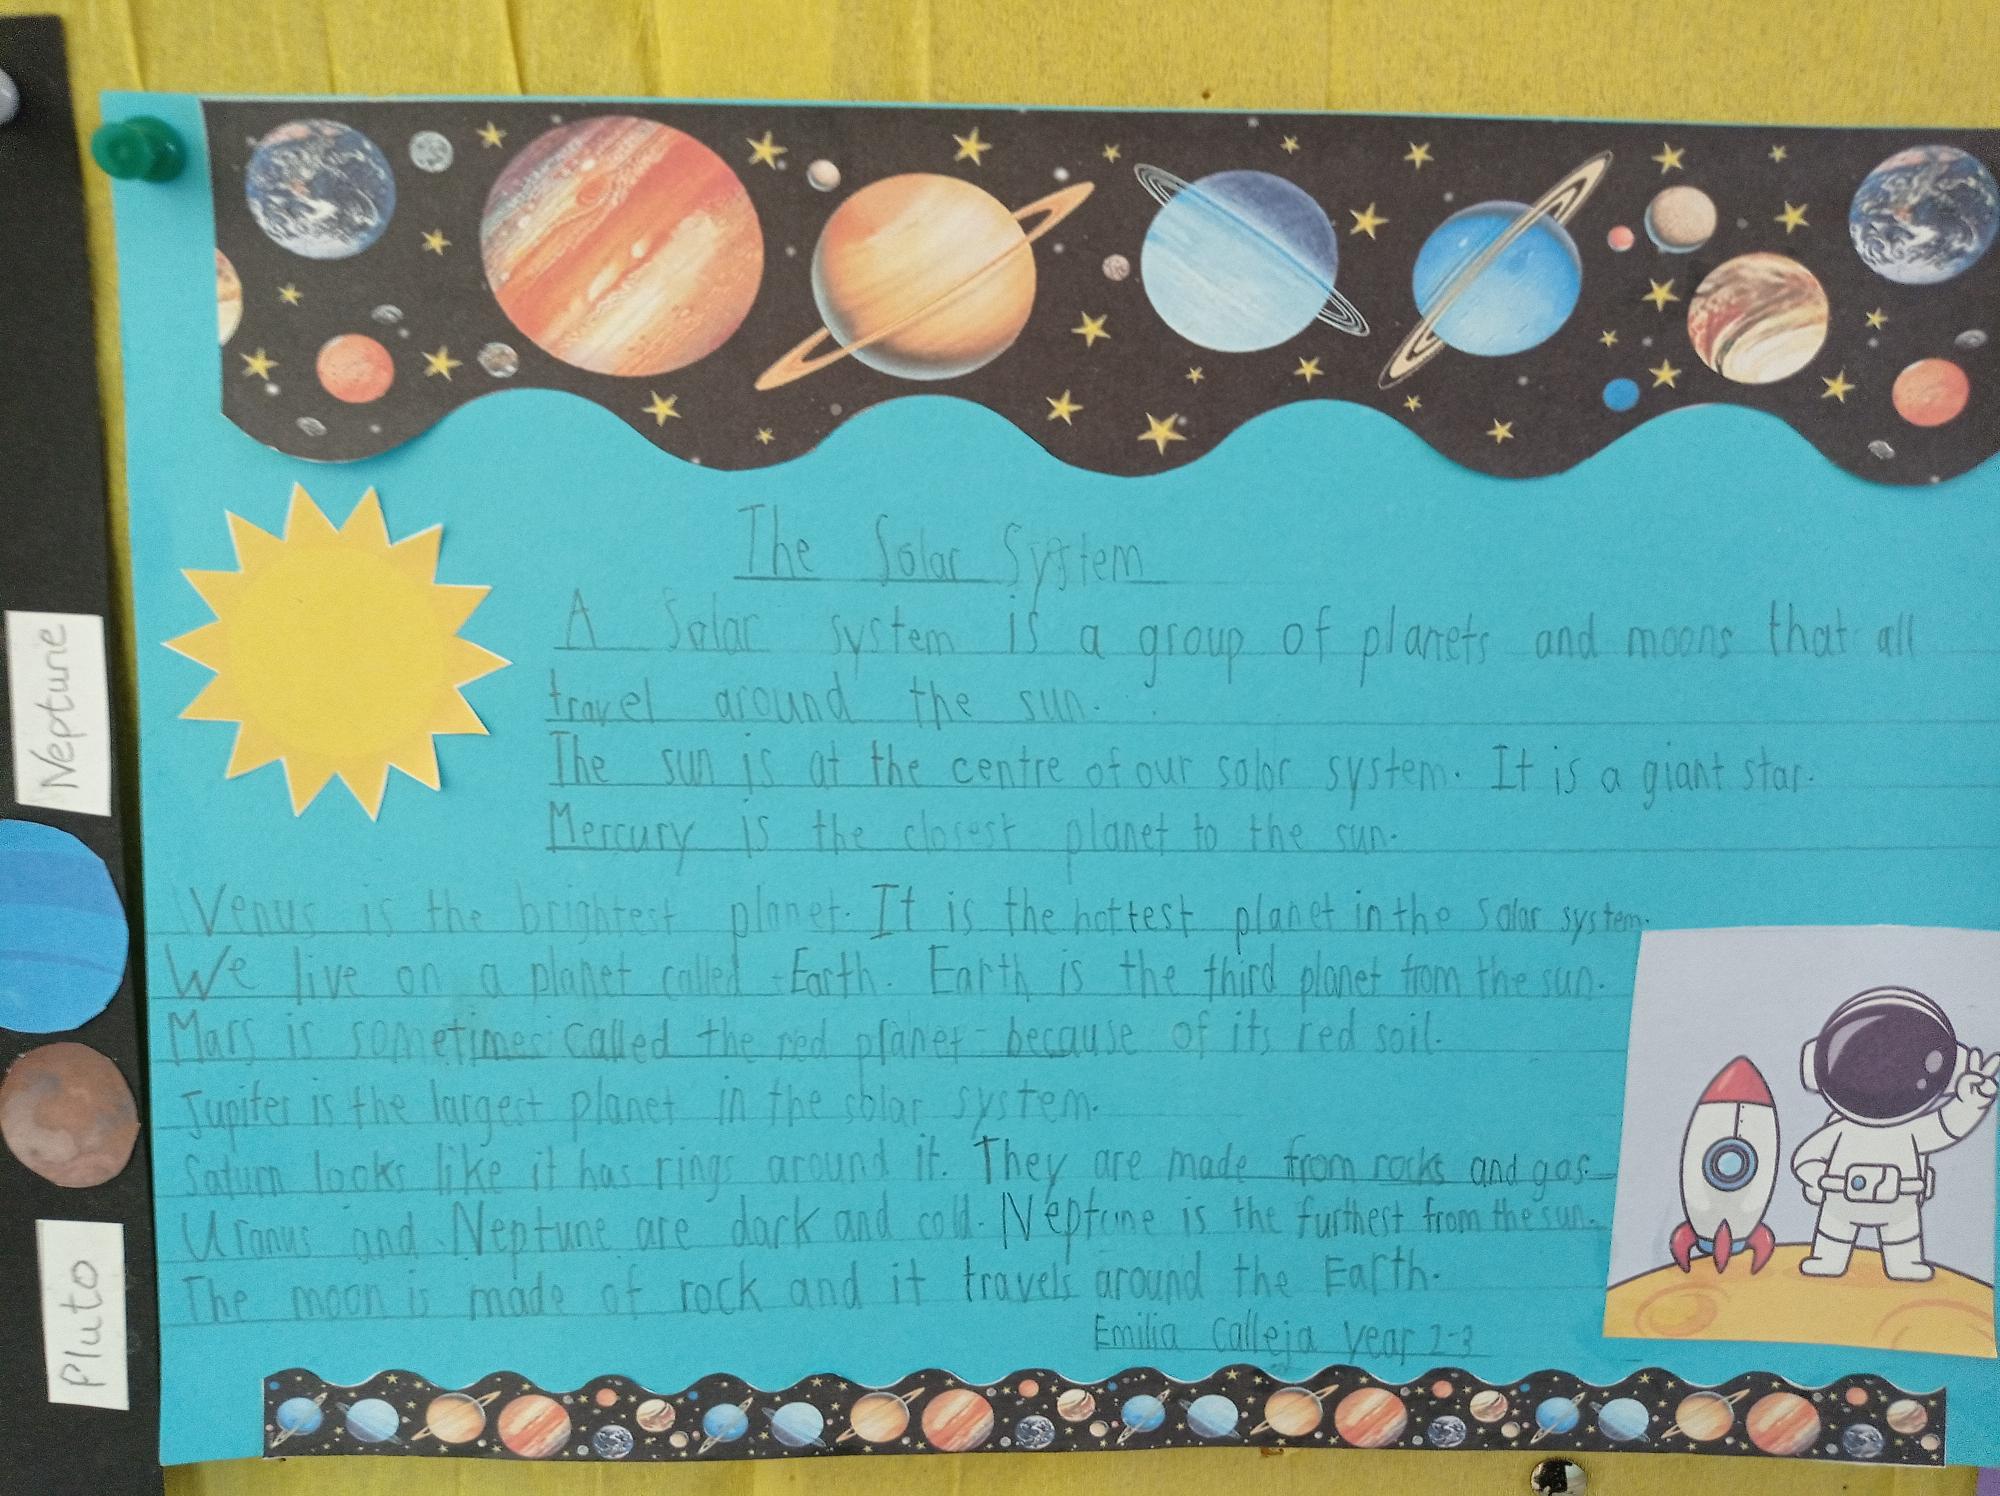 The Solar System
A Solar system is a group of planets and moons that all
travel around the sun.
The sun is at the centre of our solar system. It is a giant star.
Mercury is the closest planet to the sun.
Venus is the brightest planet. It is the hottest planet in the solar system.
We live on a planet called Earth. Earth is the third planet from the sun.
Mars is sometimes called the red planet because of its red soil.
Jupiter is the largest planet in the solar system.
Saturn looks like it has rings around it. They are made from rocks and gas.
Uranus and Neptune are dark and cold. Neptune is the furthest from the sun.
The moon is made of rock and it travels around the Earth.
Emilia Calleja Year 2-3
Neptune
Pluto